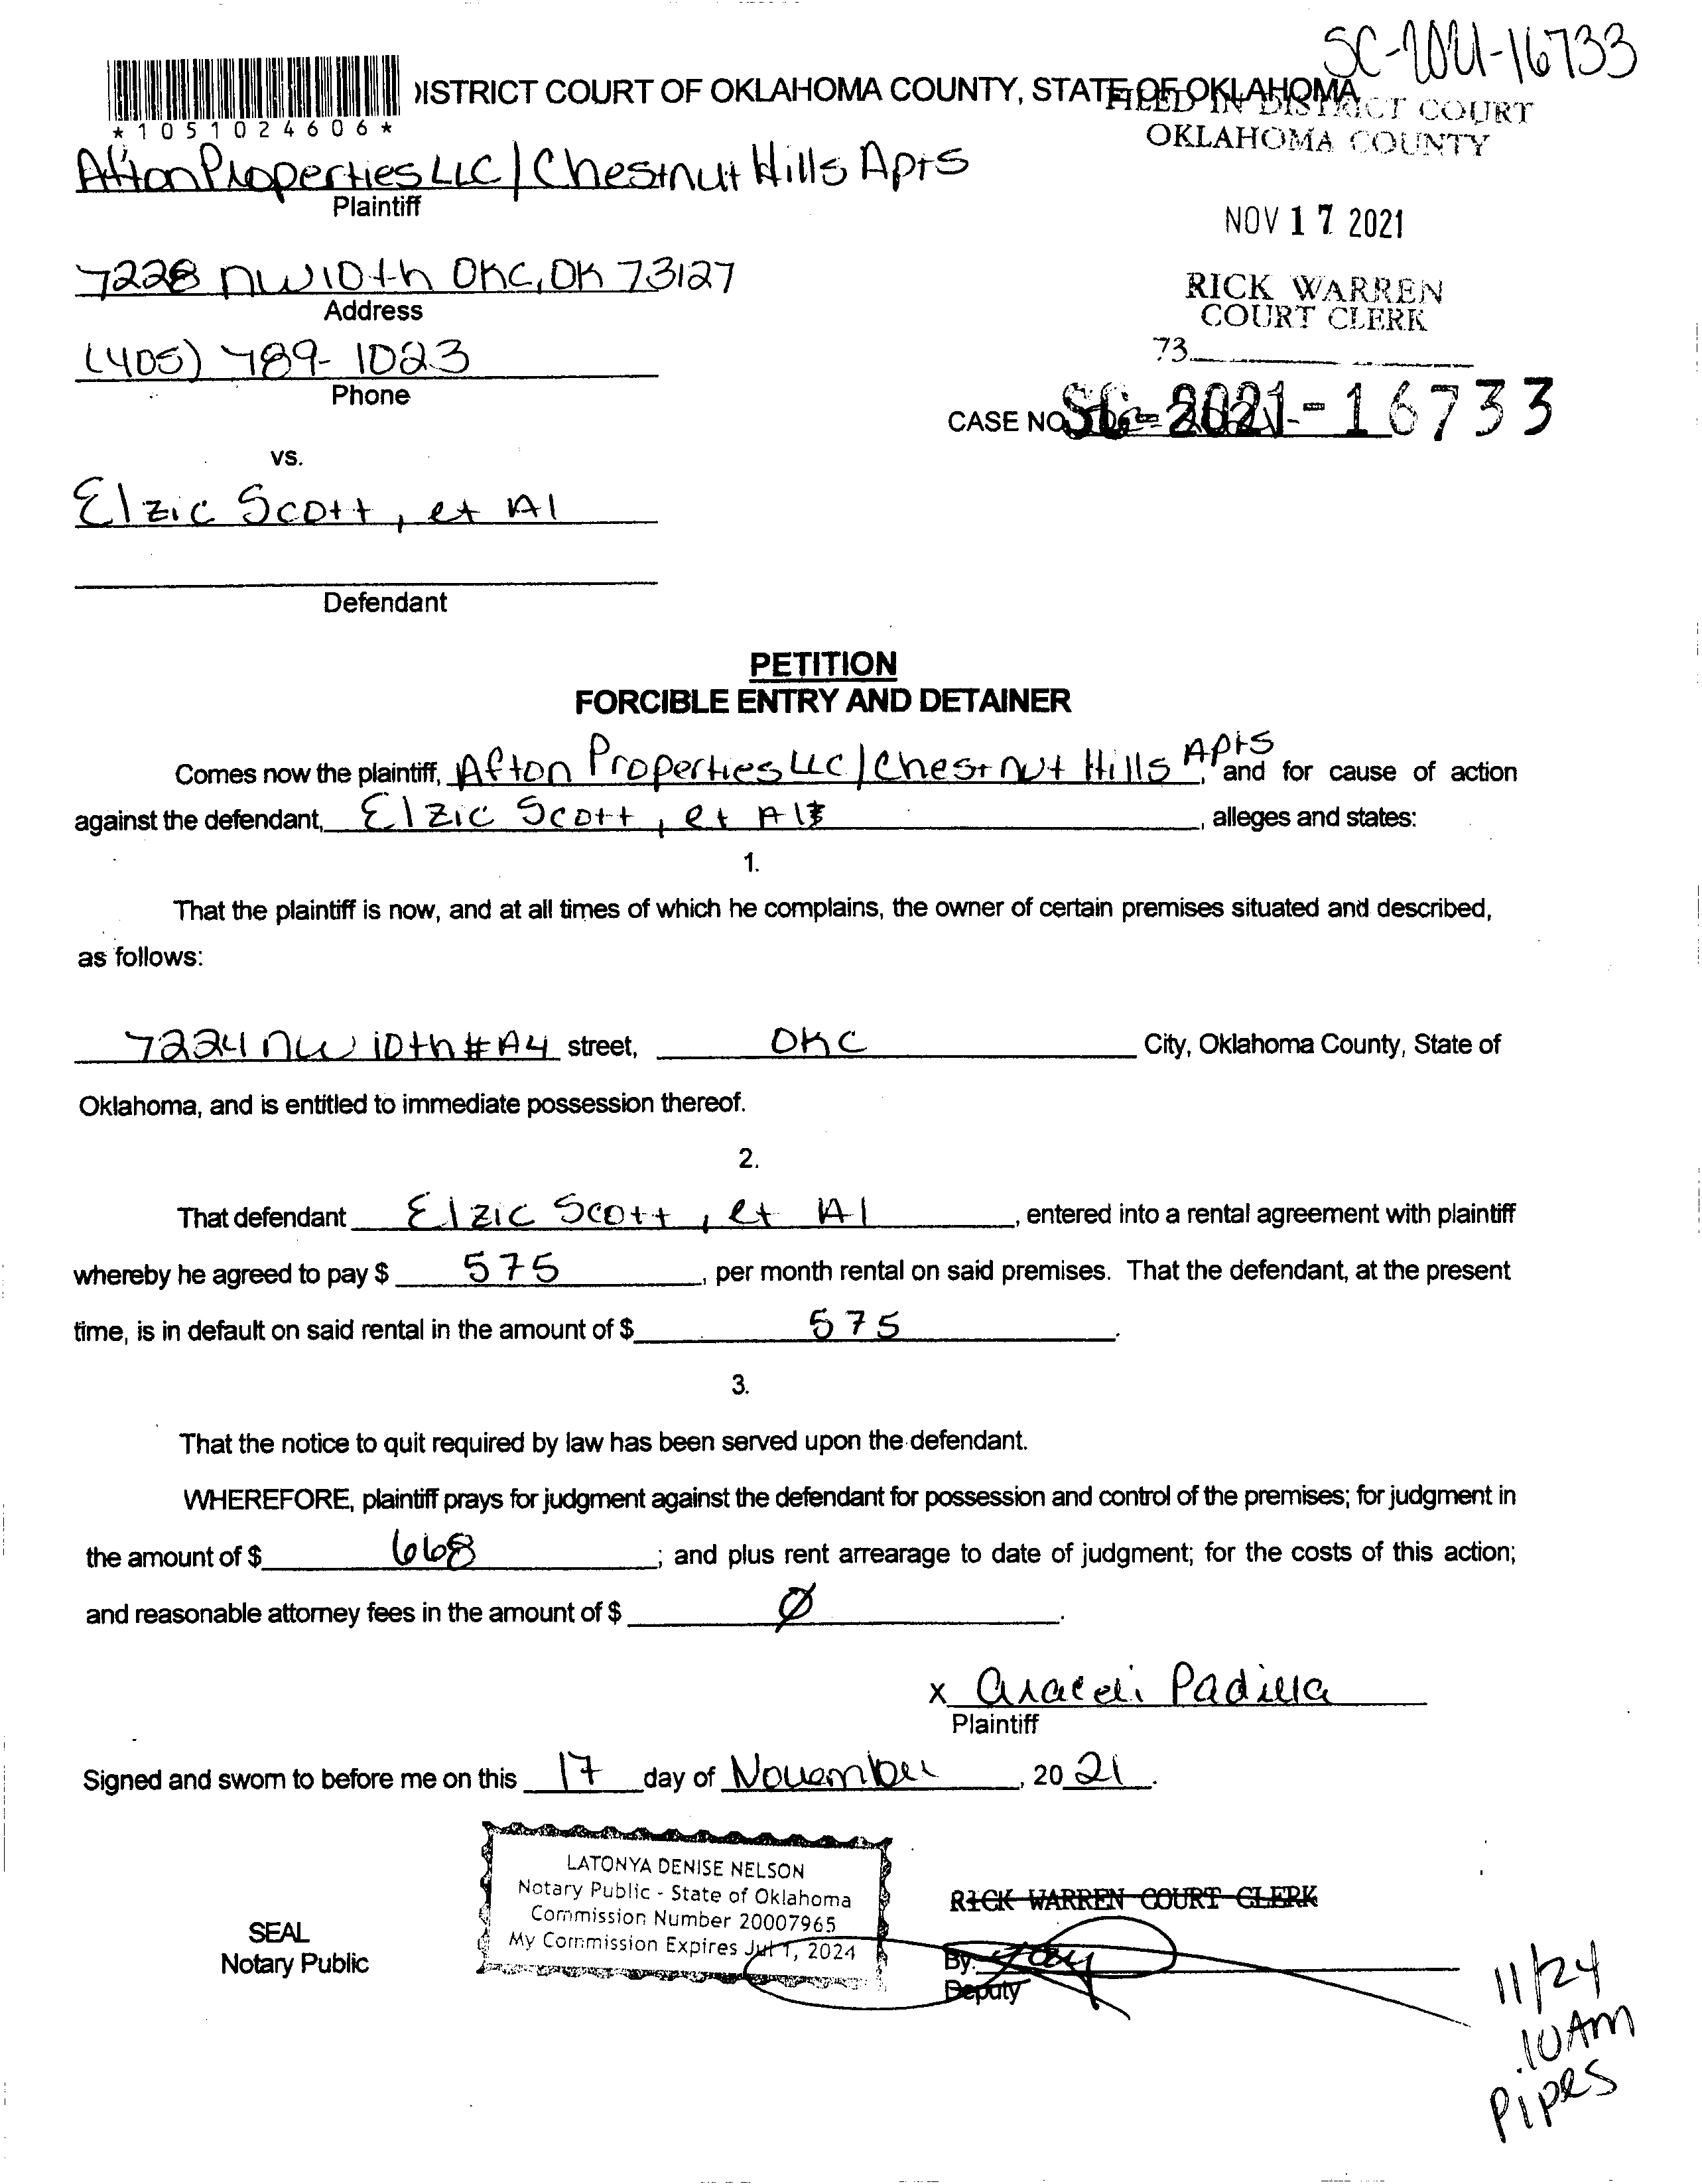 SC-2021-16733
DISTRICT COURT OF OKLAHOMA COUNTY, STATE OF OKLAHOMA
*1051024606*
FILED IN DISTRICT COURT
OKLAHOMA COUNTY
Afton Properties LLC / Chestnut Hills Apts
Plaintiff
NOV 17 2021
7228 NW 10th OKC, OK 73127
Address
RICK WARREN
COURT CLERK
(405) 789-1023
Phone
73
CASE NO. SC-2021-16733
vs.
Elzic Scott, et Al
Defendant
PETITION
FORCIBLE ENTRY AND DETAINER
Comes now the plaintiff, Afton Properties LLC / Chestnut Hills Apts, and for cause of action
against the defendant, Elzic Scott, et Al, alleges and states:
1.
That the plaintiff is now, and at all times of which he complains, the owner of certain premises situated and described,
as follows:
7224 NW 10th #A4 street, OKC City, Oklahoma County, State of
Oklahoma, and is entitled to immediate possession thereof.
2.
That defendant Elzic Scott, et Al, entered into a rental agreement with plaintiff
whereby he agreed to pay $ 575, per month rental on said premises. That the defendant, at the present
time, is in default on said rental in the amount of $ 575.
3.
That the notice to quit required by law has been served upon the defendant.
WHEREFORE, plaintiff prays for judgment against the defendant for possession and control of the premises; for judgment in
the amount of $ 668; and plus rent arrearage to date of judgment; for the costs of this action;
and reasonable attorney fees in the amount of $ Ø.
x Araceli Padilla
Plaintiff
Signed and sworn to before me on this 17 day of November, 2021.
LATONYA DENISE NELSON
Notary Public - State of Oklahoma
Commission Number 20007965
My Commission Expires Jul 1, 2024
SEAL
Notary Public
RICK WARREN COURT CLERK
By:
Deputy
11/24
10AM
Pipes